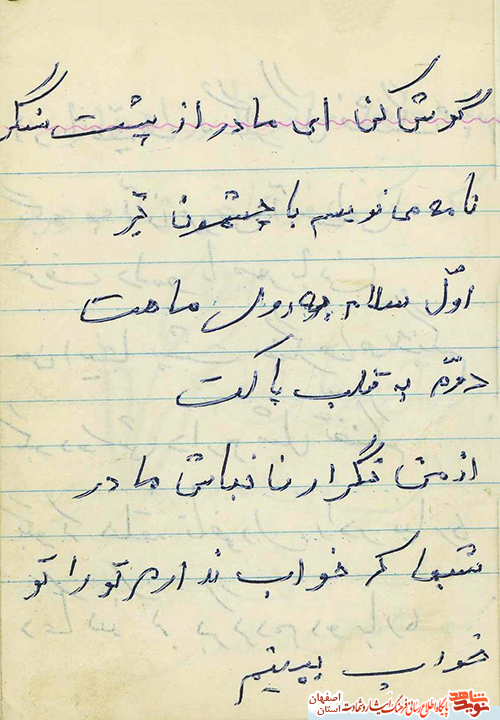 گوش کن ای مادر از پشت سنگر
نامه می نویسم با چشمون تر
اوّل سلام به روی ماهت
دوّم به قلب پاکت
از من نگران نباش مادر
شبها که خواب ندارم تو را تو
خواب ببینم
نوید شاهد
پایگاه اطلاع رسانی فرهنگ ایثار و شهادت
استان اصفهان